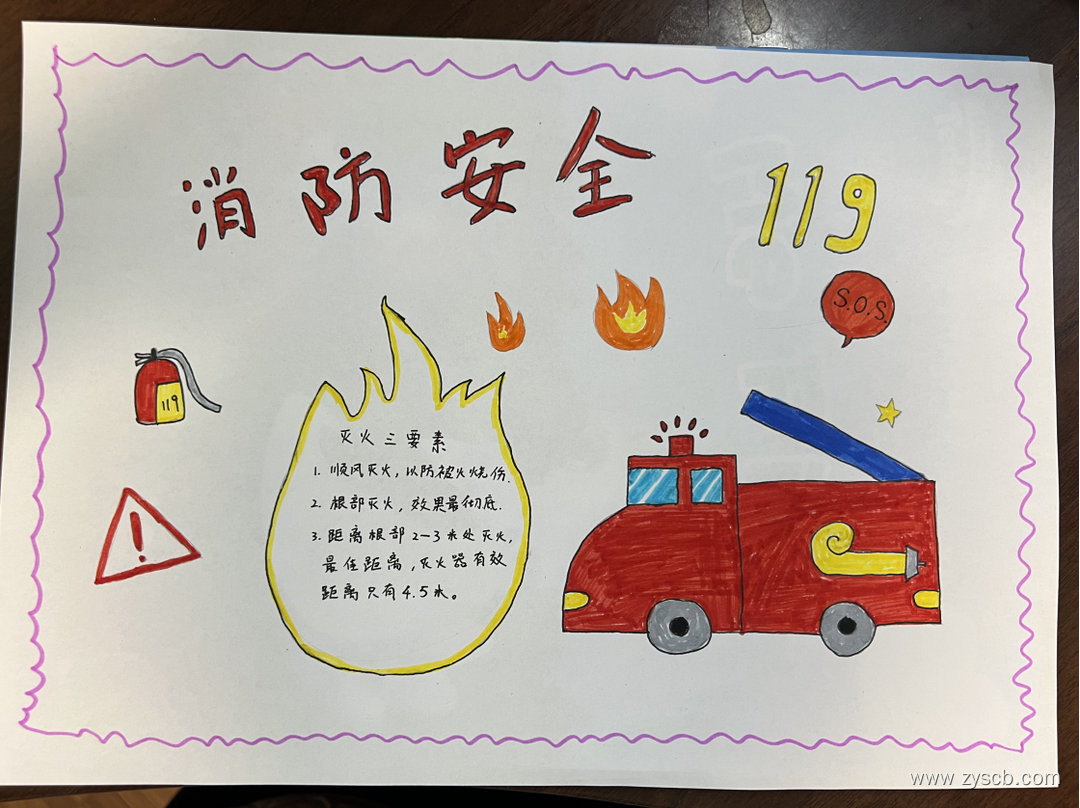 消防安全
119
S.O.S.
119
!
灭火三要素
1. 顺风灭火，以防被火烧伤.
2. 根部灭火，效果最彻底.
3. 距离根部2-3米处灭火，
最佳距离，灭火器有效
距离只有4.5米。
www.zyscb.com